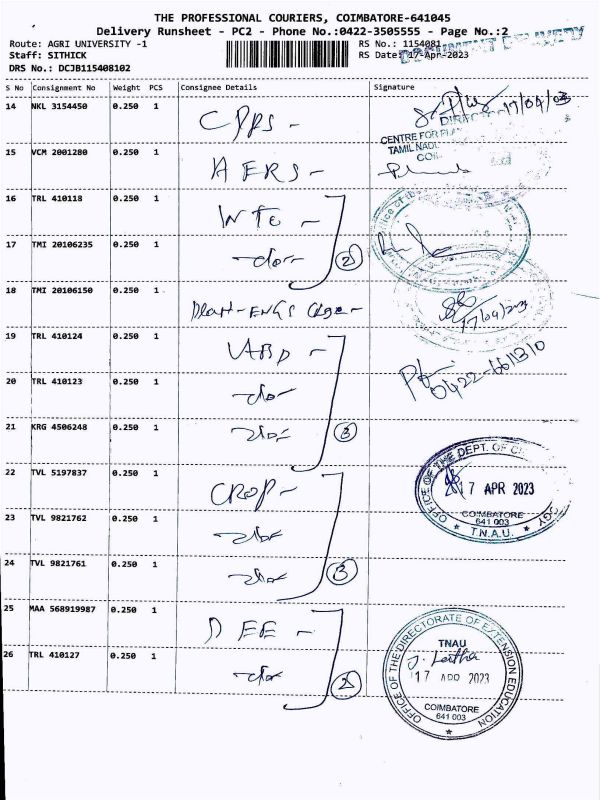 THE PROFESSIONAL COURIERS, COIMBATORE-641045
Delivery Runsheet - PC2 - Phone No.:0422-3505555 - Page No.:2
Route: AGRI UNIVERSITY -1 RS No.: 1154081
Staff: SITHICK RS Date: 17-Apr-2023
DRS No.: DCJB115408102
DOCUMENT DELIVERY
S No Consignment No Weight PCS Consignee Details Signature
14 NKL 3154450 0.250 1 CPPS - 17/04/23
DIRECTOR
CENTRE FOR
TAMIL NADU
15 VCM 2001280 0.250 1 AERS -
16 TRL 410118 0.250 1
17 TMI 20106235 0.250 1 -do- 2
18 TMI 20106150 0.250 1 17/04/23
19 TRL 410124 0.250 1
0422-6611310
20 TRL 410123 0.250 1 -do-
21 KRG 4506248 0.250 1 -do- 3
22 TVL 5197837 0.250 1 CROP -
OFFICE OF THE DEPT. OF
17 APR 2023
COIMBATORE
641 003
T.N.A.U.
23 TVL 9821762 0.250 1 -do-
24 TVL 9821761 0.250 1 -do- 3
25 MAA 568919987 0.250 1 DEE -
26 TRL 410127 0.250 1 -do- 2
OFFICE OF THE DIRECTORATE OF EXTENSION EDUCATION
TNAU
17 APR 2023
COIMBATORE
641 003